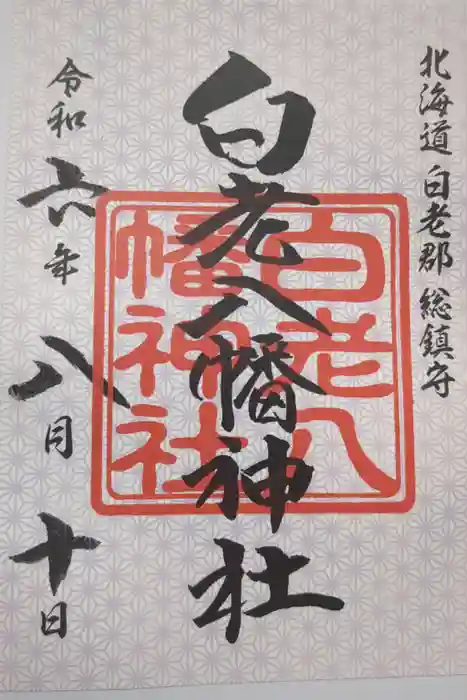 北海道 白老郡 総鎮守
白老八幡神社
白老八
幡神社
令和六年 八月 十日